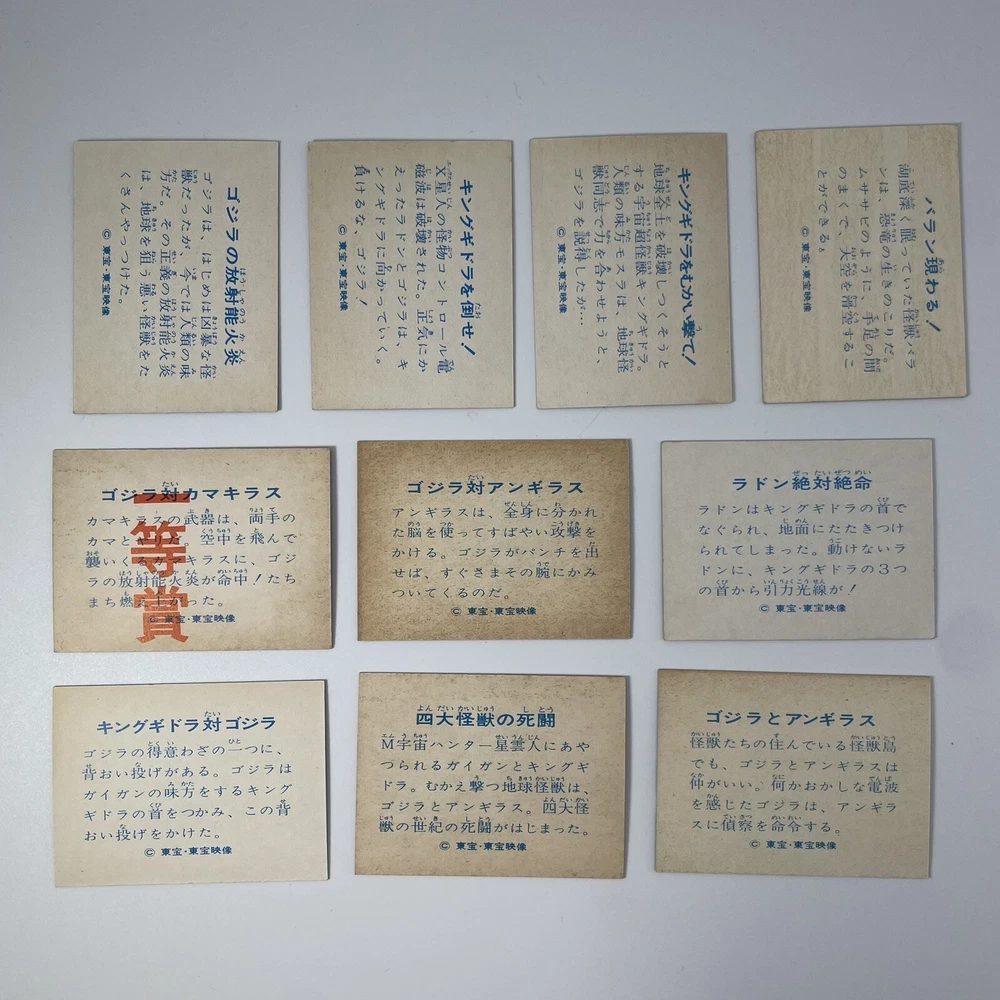 ゴジラの放射能火炎
ゴジラは、はじめは凶暴な怪
獣だったが、今では人類の味
方だ。その正義の放射能火炎
は、地球を狙う悪い怪獣をた
くさんやっつけた。
© 東宝・東宝映像
キングギドラを倒せ!
X星人の怪物コントロール電
磁波は破壊された。正気にか
えったラドンとゴジラは、キ
ングギドラに向かっていく。
負けるな、ゴジラ!
© 東宝・東宝映像
キングギドラをむかい撃て!
地球全土を破壊しつくそうと
する宇宙超怪獣キングギドラ。
人類の味方モスラは、地球怪
獣同志で力を合わせようと、
ゴジラを説得したが…
© 東宝・東宝映像
バラン現わる!
湖底深く眠っていた怪獣バラ
ンは、恐竜の生きのこりだ。
ムササビのように、手足の間
のまくで、大空を滑空するこ
とができる。
© 東宝・東宝映像
ゴジラ対カマキラス
カマキラスの武器は、両手の
カマとキバだ。空中を飛んで
襲いくるカマキラスに、ゴジ
ラの放射能火炎が命中!たち
まち燃え上がった。
© 東宝・東宝映像
一等賞
ゴジラ対アンギラス
アンギラスは、全身に分かれ
た脳を使ってすばやい攻撃を
かける。ゴジラがパンチを出
せば、すぐさまその腕にかみ
ついてくるのだ。
© 東宝・東宝映像
ラドン絶対絶命
ラドンはキングギドラの首で
なぐられ、地面にたたきつけ
られてしまった。動けないラ
ドンに、キングギドラの3つ
の首から引力光線が!
© 東宝・東宝映像
キングギドラ対ゴジラ
ゴジラの得意わざの一つに、
背おい投げがある。ゴジラは
ガイガンの味方をするキング
ギドラの首をつかみ、この背
おい投げをかけた。
© 東宝・東宝映像
四大怪獣の死闘
M宇宙ハンター星雲人にあや
づられるガイガンとキングギ
ドラ。むかえ撃つ地球怪獣は、
ゴジラとアンギラス。四大怪
獣の世紀の死闘がはじまった。
© 東宝・東宝映像
ゴジラとアンギラス
怪獣たちの住んでいる怪獣島
でも、ゴジラとアンギラスは
仲がいい。何かおかしな電波
を感じたゴジラは、アンギラ
スに偵察を命令する。
© 東宝・東宝映像